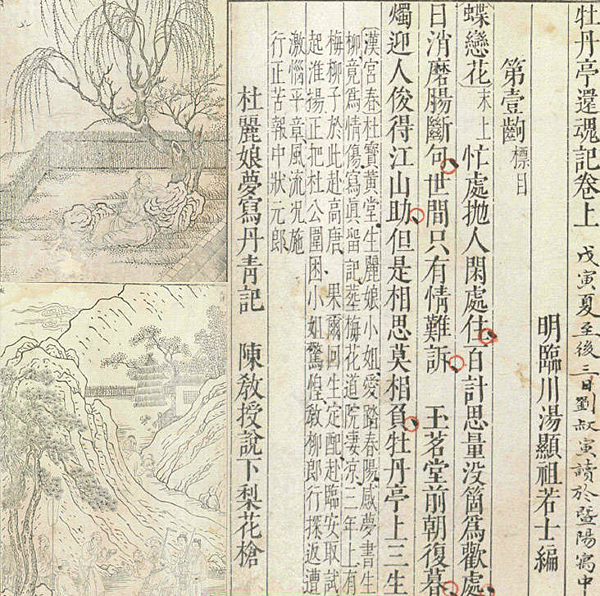 牡丹亭還魂記卷上 戊寅夏至後三日劉叔寅讀於暨陽寓中
明臨川湯顯祖若士編
第壹齣 標目
蝶戀花 末上 忙處抛人閑處住百計思量没箇爲歡處
日消磨腸斷句世間只有情難訴 玉茗堂前朝復暮
燭迎人俊得江山助但是相思莫相負牡丹亭上三生
漢宮春杜寶黃堂生麗娘小姐愛踏春陽感夢書生
柳竟爲情傷寫眞留記葬梅花道院凄凉三年上有
梅柳子於此赴高唐 果爾回生定配赴臨安取試
起淮揚正把杜公圍困小姐驚惶敎柳郎行探返遭
激惱平章風流況施
行正苦報中狀元郎
杜麗娘夢寫丹青記 陳敎授說下梨花槍